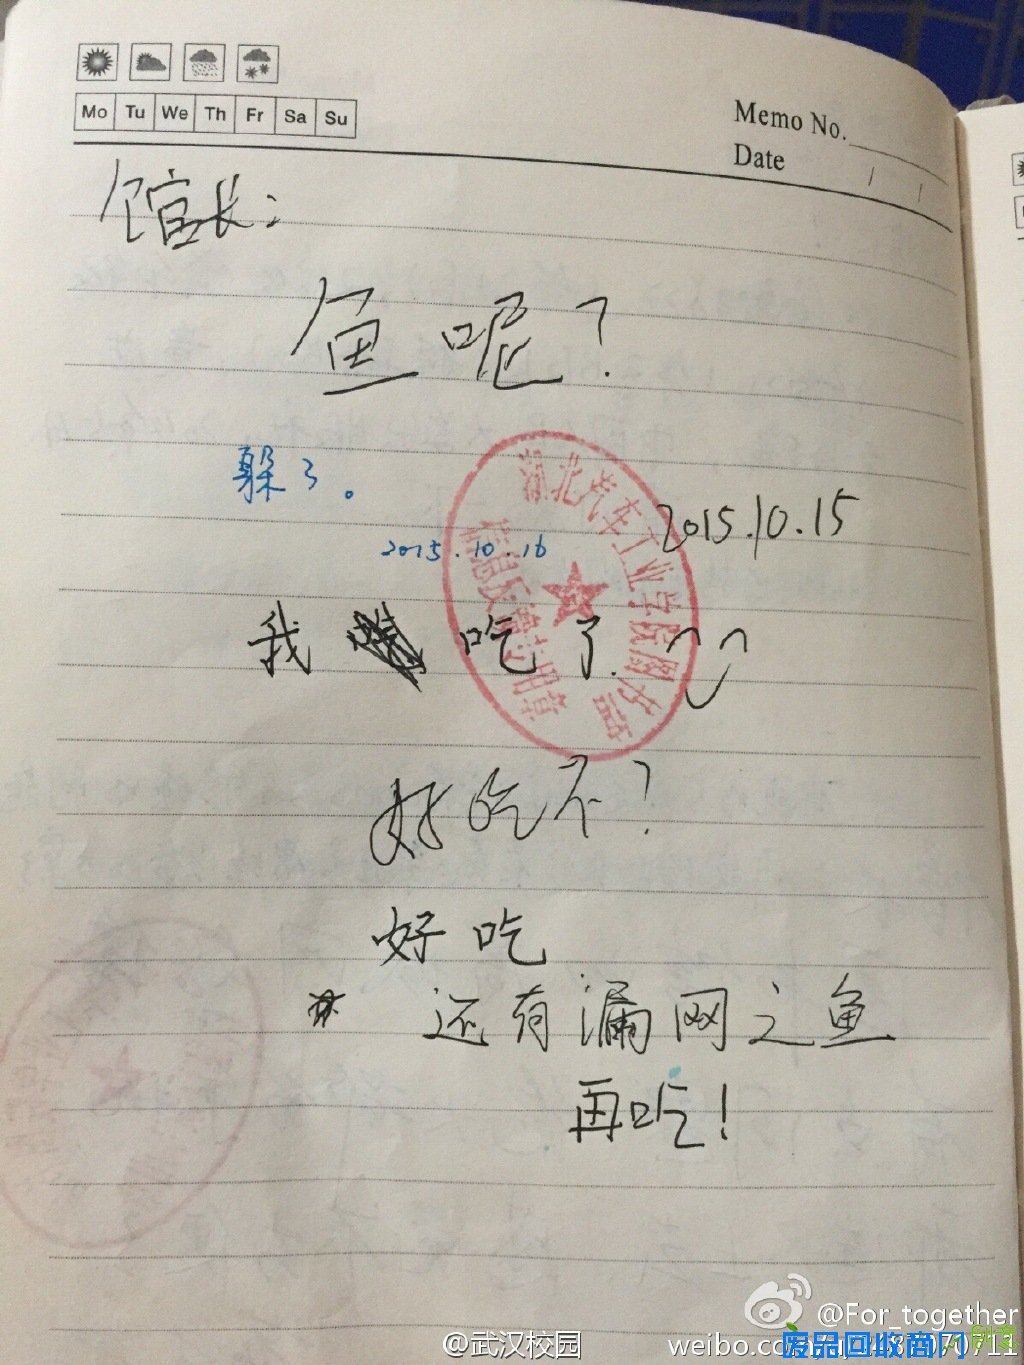 Mo Tu We Th Fr Sa Su
Memo No.
Date / /
馆长：
鱼呢？
躲了。
2015.10.15
2015.10.16
我 吃了
湖北汽车工业学院图书馆
信息反馈专用章
好吃不？
好吃
还有漏网之鱼
再吃！
@For_together
@武汉校园
weibo.com
废品回收商网
711